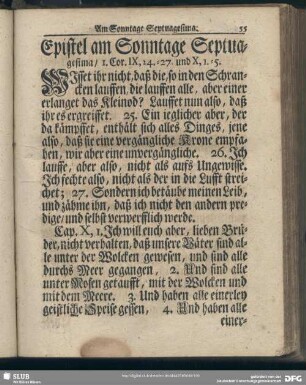 Am Sonntage Septuagesima. 55
Epistel am Sonntage Septua-
gesima/ 1. Cor. IX, 14.-27. und X, 1.-5.
WIsset ihr nicht, daß die, so in den Schran-
cken lauffen, die lauffen alle, aber einer
erlanget das Kleinod? Lauffet nun also, daß
ihr es ergreiffet. 25. Ein ieglicher aber, der
da kämpffet, enthält sich alles Dinges, jene
also, daß sie eine vergängliche Krone empfa-
hen, wir aber eine unvergängliche. 26. Ich
lauffe, aber also, nicht als aufs Ungewisse.
Ich fechte also, nicht als der in die Lufft strei-
chet; 27. Sondern ich betäube meinen Leib,
und zähme ihn, daß ich nicht den andern pre-
dige/ und selbst verwerfflich werde.
Cap. X, 1. Ich will euch aber, lieben Brü-
der, nicht verhalten, daß unsere Väter sind al-
le unter der Wolcken gewesen, und sind alle
durchs Meer gegangen, 2. Und sind alle
unter Mosen getaufft, mit der Wolcken und
mit dem Meere. 3. Und haben alle einerley
geistliche Speise gessen, 4. Und haben alle
einer-
SLUB
DFG